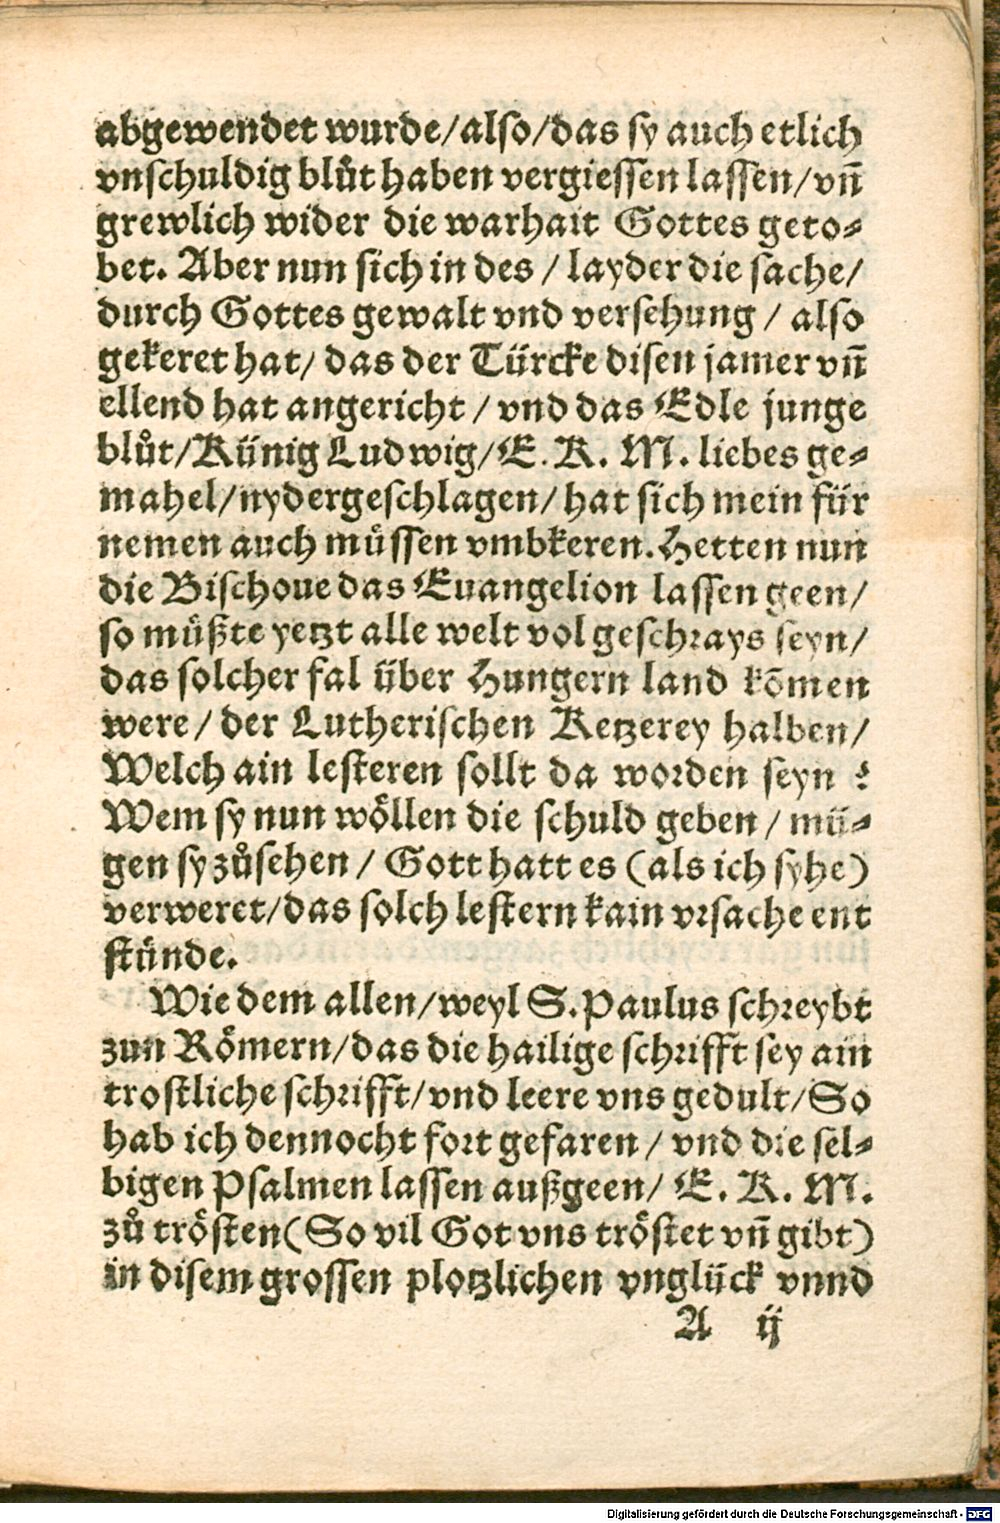 abgewendet wurde/also/das sy auch etlich
vnschuldig blůt haben vergiessen lassen/vñ
grewlich wider die warhait Gottes geto⸗
bet. Aber nun sich in des / layder die sache/
durch Gottes gewalt vnd versehung / also
gekeret hat/ das der Türcke disen jamer vñ
ellend hat angericht / vnd das Edle junge
blůt/Künig Ludwig/E. K. M. liebes ge⸗
mahel/nydergeschlagen/ hat sich mein für
nemen auch müssen vmbkeren. Hetten nun
die Bischoue das Euangelion lassen geen/
so müßte yetzt alle welt vol geschrays seyn/
das solcher fal über Hungern land kõmen
were / der Lutherischen Ketzerey halben/
Welch ain lesteren sollt da worden seyn ?
Wem sy nun wöllen die schuld geben / mü⸗
gen sy zůsehen / Gott hatt es (als ich syhe)
verweret/das solch lestern kain vrsache ent
stünde.
Wie dem allen/weyl S. Paulus schreybt
zun Römern/das die hailige schrifft sey ain
trostliche schrifft/vnd leere vns gedult/So
hab ich dennocht fort gefaren / vnd die sel⸗
bigen Psalmen lassen außgeen/ E. K. M.
zů trösten(So vil Got vns tröstet vñ gibt)
in disem grossen plotzlichen vnglück vnnd
A ij
Digitalisierung gefördert durch die Deutsche Forschungsgemeinschaft - DFG